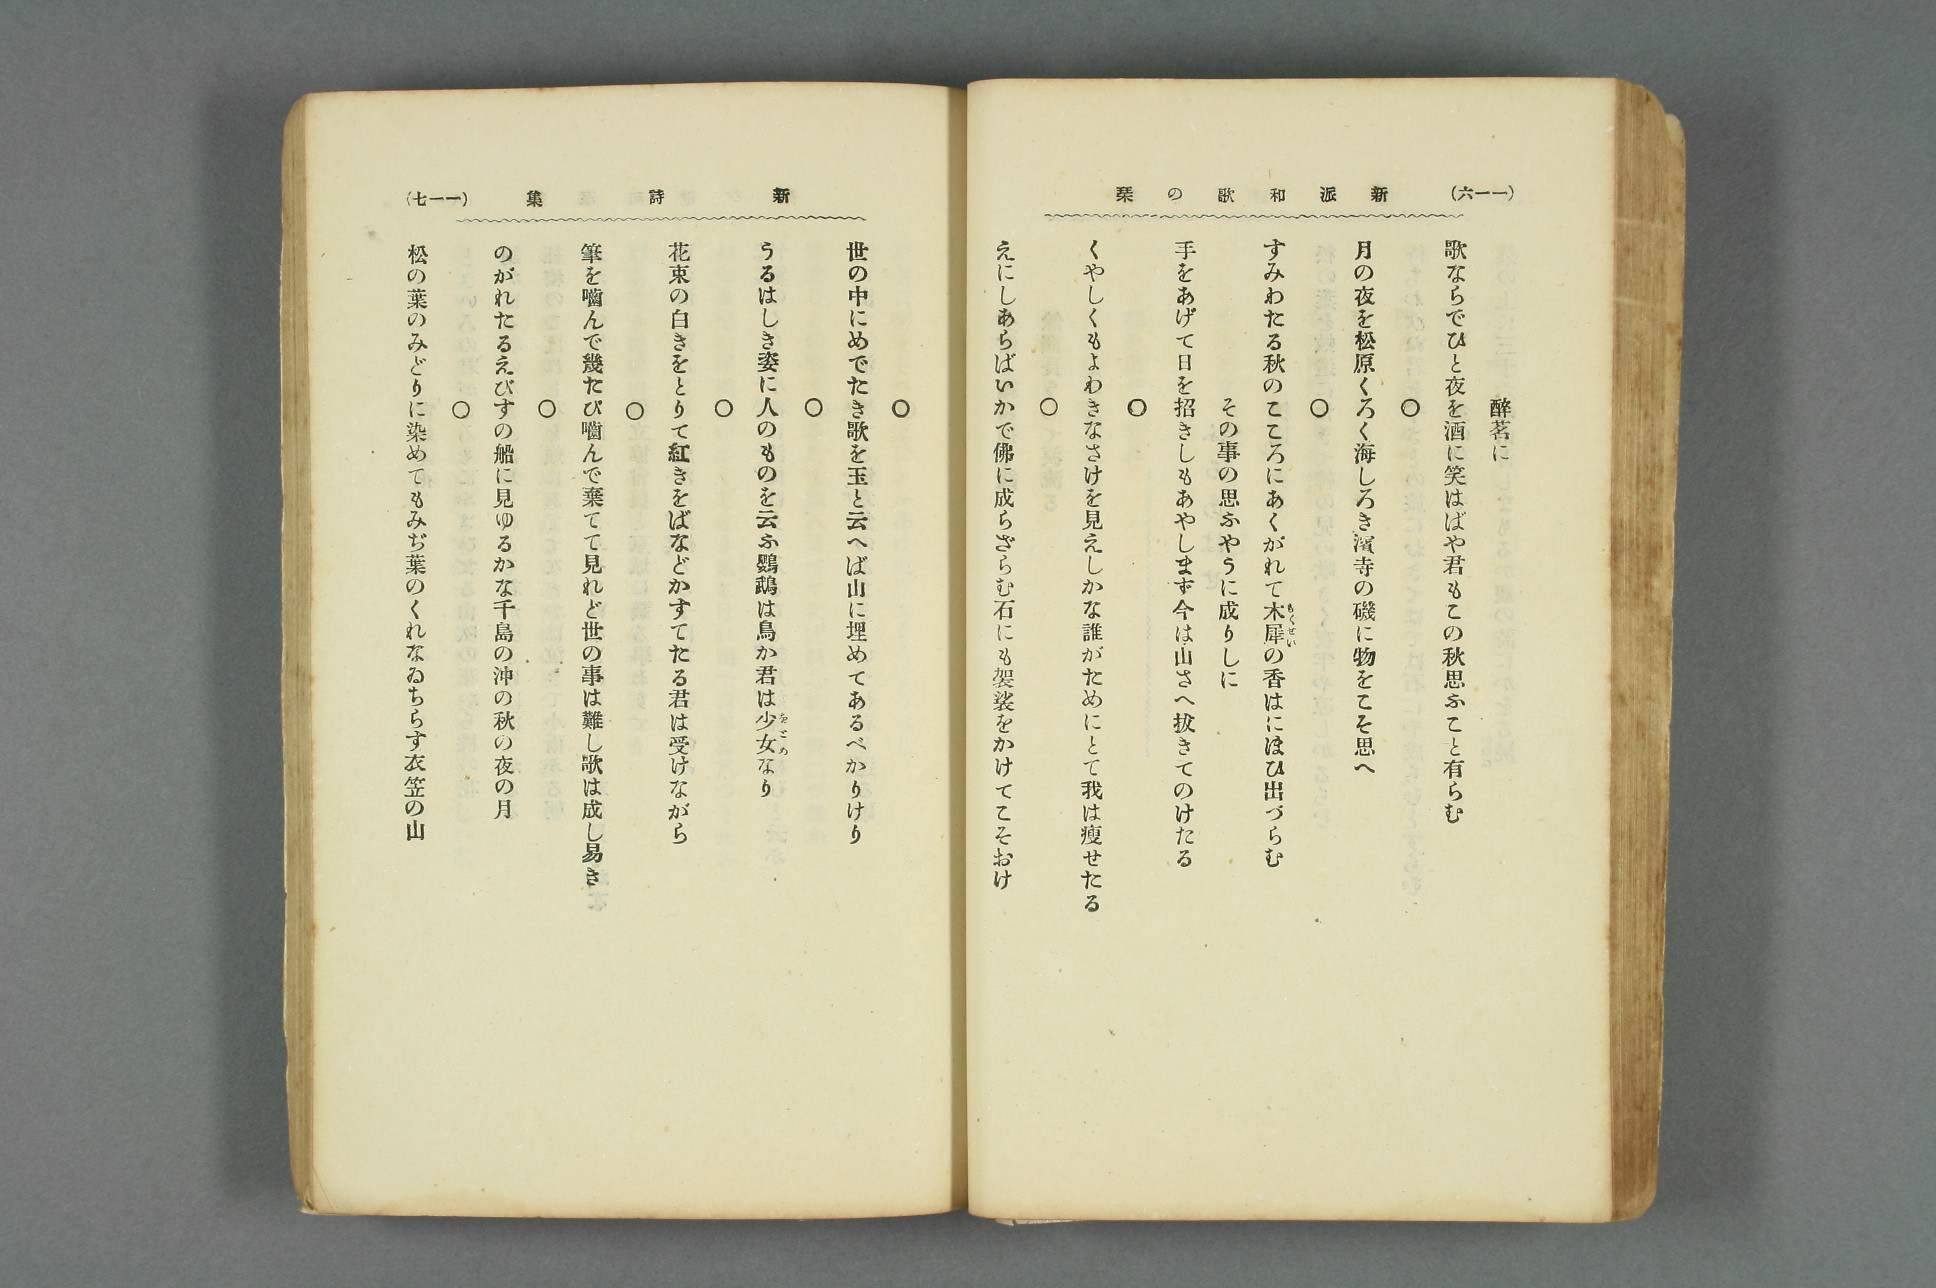 (一一六)　新派和歌の栞
醉茗に
歌ならでひと夜を酒に笑はばや君もこの秋思ふこと有らむ
○
月の夜を松原くろく海しろき濱寺の磯に物をこそ思へ
○
すみわたる秋のこころにあくがれて木犀の香はにほひ出づらむ
もくせい
その事の思ふやうに成りしに
手をあげて日を招きしもあやしまず今は山さへ拔きてのけたる
○
くやしくもよわきなさけを見えしかな誰がためにとて我は瘦せたる
○
えにしあらばいかで佛に成らざらむ石にも袈裟をかけてこそおけ
新詩集　(一一七)
○
世の中にめでたき歌を玉と云へば山に埋めてあるべかりけり
○
うるはしき姿に人のものを云ふ鸚鵡は鳥か君は少女なり
をとめ
○
花束の白きをとりて紅きをばなどかすてたる君は受けながら
○
筆を嚙んで幾たび嚙んで棄てて見れど世の事は難し歌は成し易き
○
のがれたるえびすの船に見ゆるかな千島の沖の秋の夜の月
○
松の葉のみどりに染めてもみぢ葉のくれなゐちらす衣笠の山